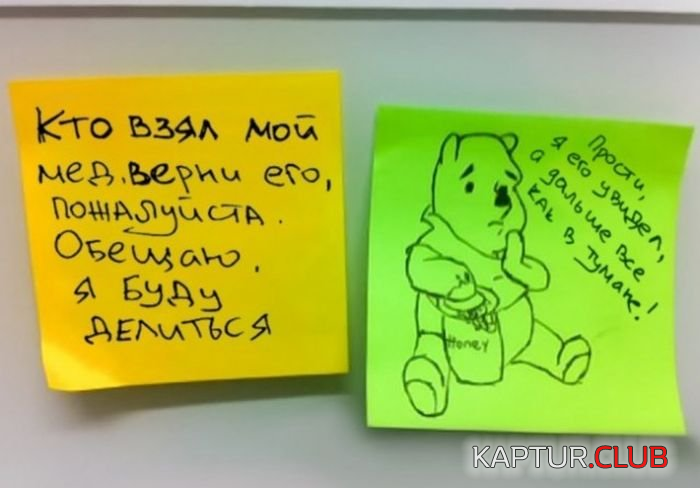 КТО ВЗЯЛ МОЙ
МЕД, ВЕРНИ ЕГО,
ПОЖАЛУЙСТА.
ОБЕЩАЮ,
Я БУДУ
ДЕЛИТЬСЯ
Прости,
я его увидел,
а дальше все
как в тумане!
Honey
KAPTUR.CLUB